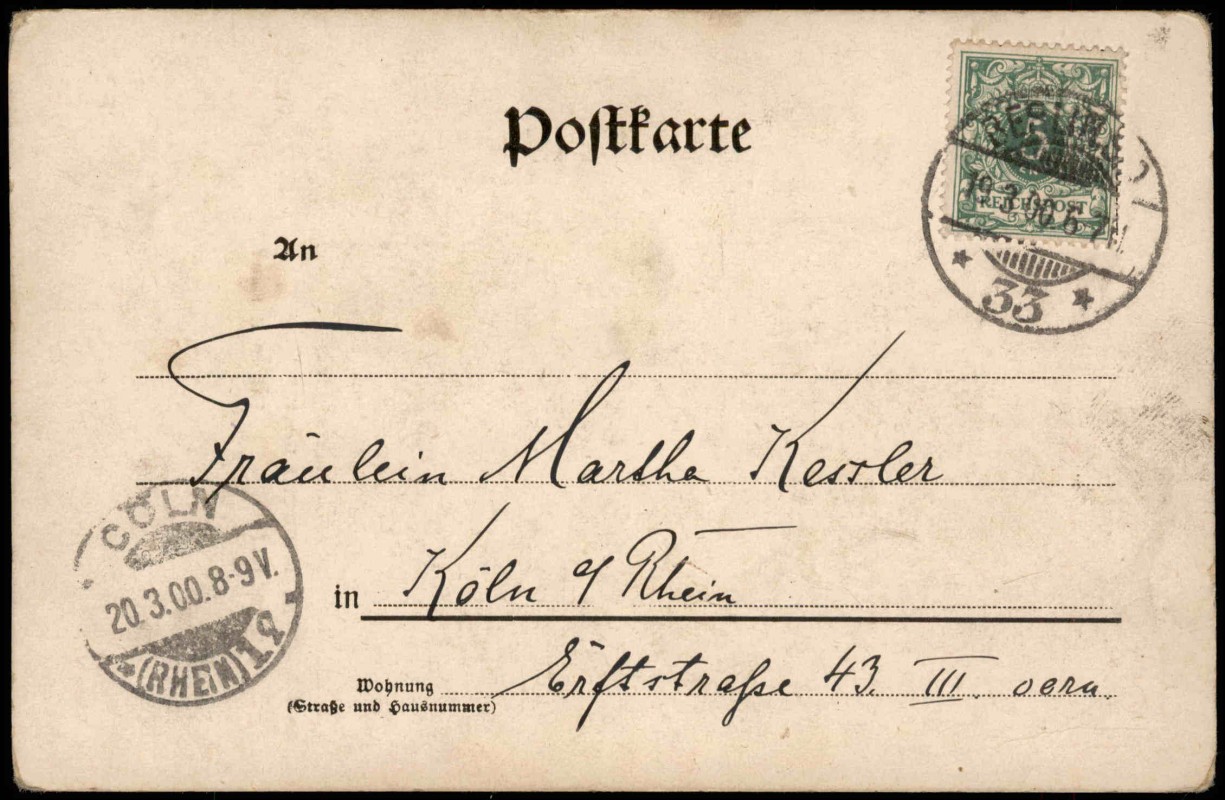 Postkarte
5
REICHSPOST
19.3.00 6-7
33
An
Fräulein Martha Kessler
CÖLN
20.3.00.8-9V.
(RHEIN) 1
in Köln a/ Rhein
Wohnung Erftstraße 43. III.
(Straße und Hausnummer)